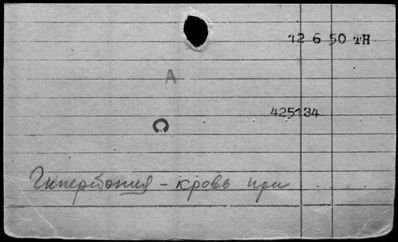 12 6 50 TH
A
425134
Гипертония - кровь при . . . .